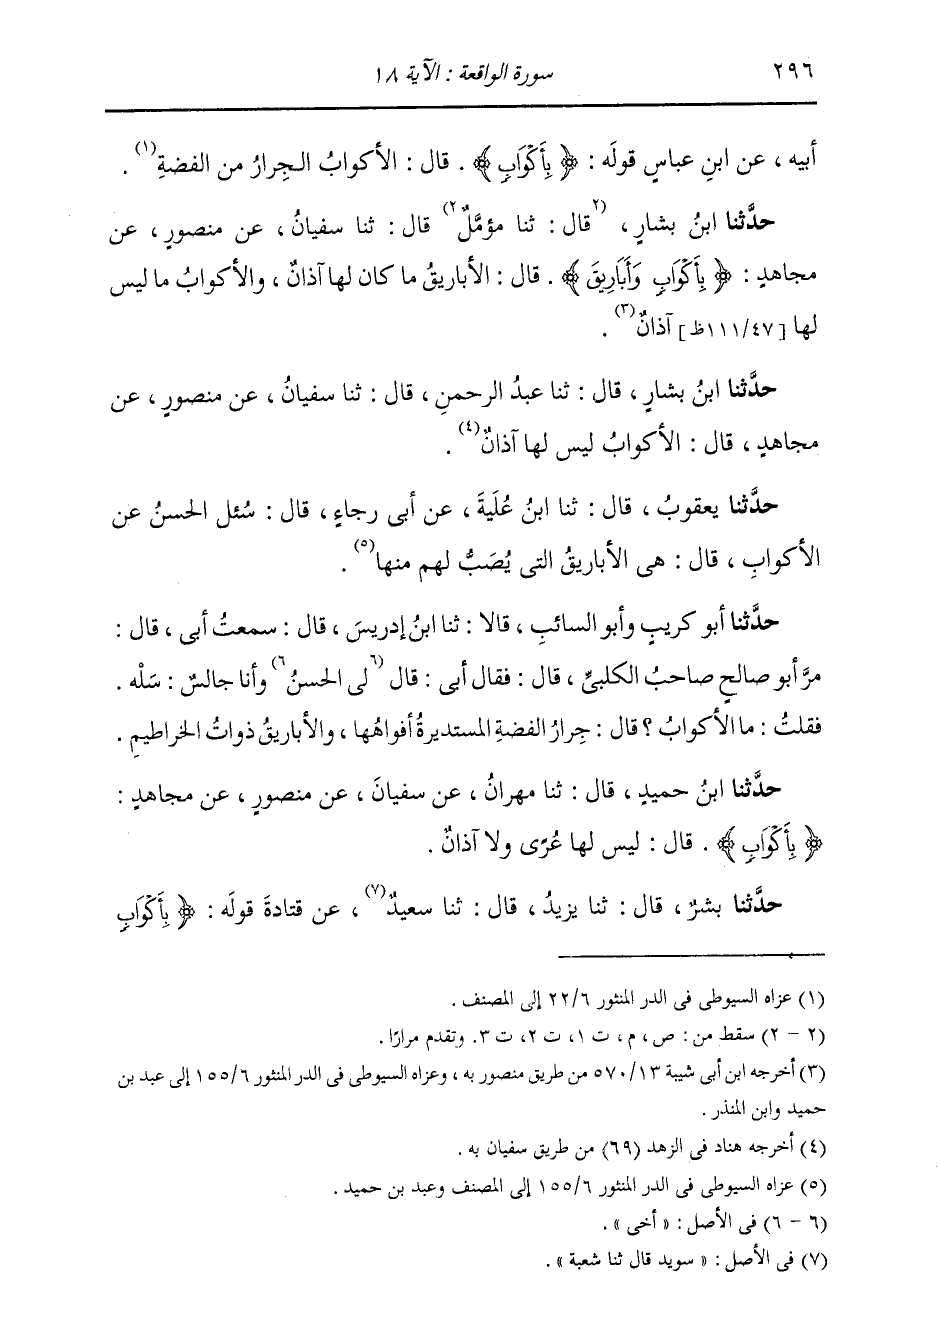 ٢٩٦ سورة الواقعة : الآية ١٨
أبيه ، عن ابنِ عباسٍ قولَه : ﴿ بِأَكْوَابٍ ﴾ . قال : الأكوابُ الجِرارُ من الفضةِ(١) .
حدَّثنا ابنُ بشارٍ ، (٢قال : ثنا مؤمَّلٌ٢) قال : ثنا سفيانُ ، عن منصورٍ ، عن
مجاهدٍ : ﴿ بِأَكْوَابٍ وَأَبَارِيقَ ﴾ . قال : الأباريقُ ما كان لها آذانٌ ، والأكوابُ ما ليس
لها [١١١/٤٧ظ] آذانٌ(٣) .
حدَّثنا ابنُ بشارٍ ، قال : ثنا عبدُ الرحمنِ ، قال : ثنا سفيانُ ، عن منصورٍ ، عن
مجاهدٍ ، قال : الأكوابُ ليس لها آذانٌ(٤) .
حدَّثنا يعقوبُ ، قال : ثنا ابنُ عُلَيةَ ، عن أبى رجاءٍ ، قال : سُئل الحسنُ عن
الأكوابِ ، قال : هى الأباريقُ التى يُصَبُّ لهم منها(٥) .
حدَّثنا أبو كريبٍ وأبو السائبِ ، قالا : ثنا ابنُ إدريسَ ، قال : سمعتُ أبى ، قال :
مرَّ أبو صالحٍ صاحبُ الكلبيِّ ، قال : فقال أبى : قال (٦لى الحسنُ٦) وأنا جالسٌ : سَلْه .
فقلتُ : ما الأكوابُ ؟ قال : جِرارُ الفضةِ المستديرةُ أفواهُها ، والأباريقُ ذواتُ الخراطيمِ .
حدَّثنا ابنُ حميدٍ ، قال : ثنا مهرانُ ، عن سفيانَ ، عن منصورٍ ، عن مجاهدٍ :
﴿ بِأَكْوَابٍ ﴾ . قال : ليس لها عُرًى ولا آذانٌ .
حدَّثنا بشرٌ ، قال : ثنا يزيدُ ، قال : ثنا سعيدٌ(٧) ، عن قتادةَ قولَه : ﴿ بِأَكْوَابٍ
(١) عزاه السيوطى فى الدر المنثور ٢٢/٦ إلى المصنف .
(٢ - ٢) سقط من : ص ، م ، ت ١، ت ٢، ت ٣. وتقدم مرارًا .
(٣) أخرجه ابن أبى شيبة ٥٧٠/١٣ من طريق منصور به ، وعزاه السيوطى فى الدر المنثور ١٥٥/٦ إلى عبد بن
حميد وابن المنذر .
(٤) أخرجه هناد فى الزهد (٦٩) من طريق سفيان به .
(٥) عزاه السيوطى فى الدر المنثور ١٥٥/٦ إلى المصنف وعبد بن حميد .
(٦ - ٦) فى الأصل : « أخى » .
(٧) فى الأصل : « سويد قال ثنا شعبة » .